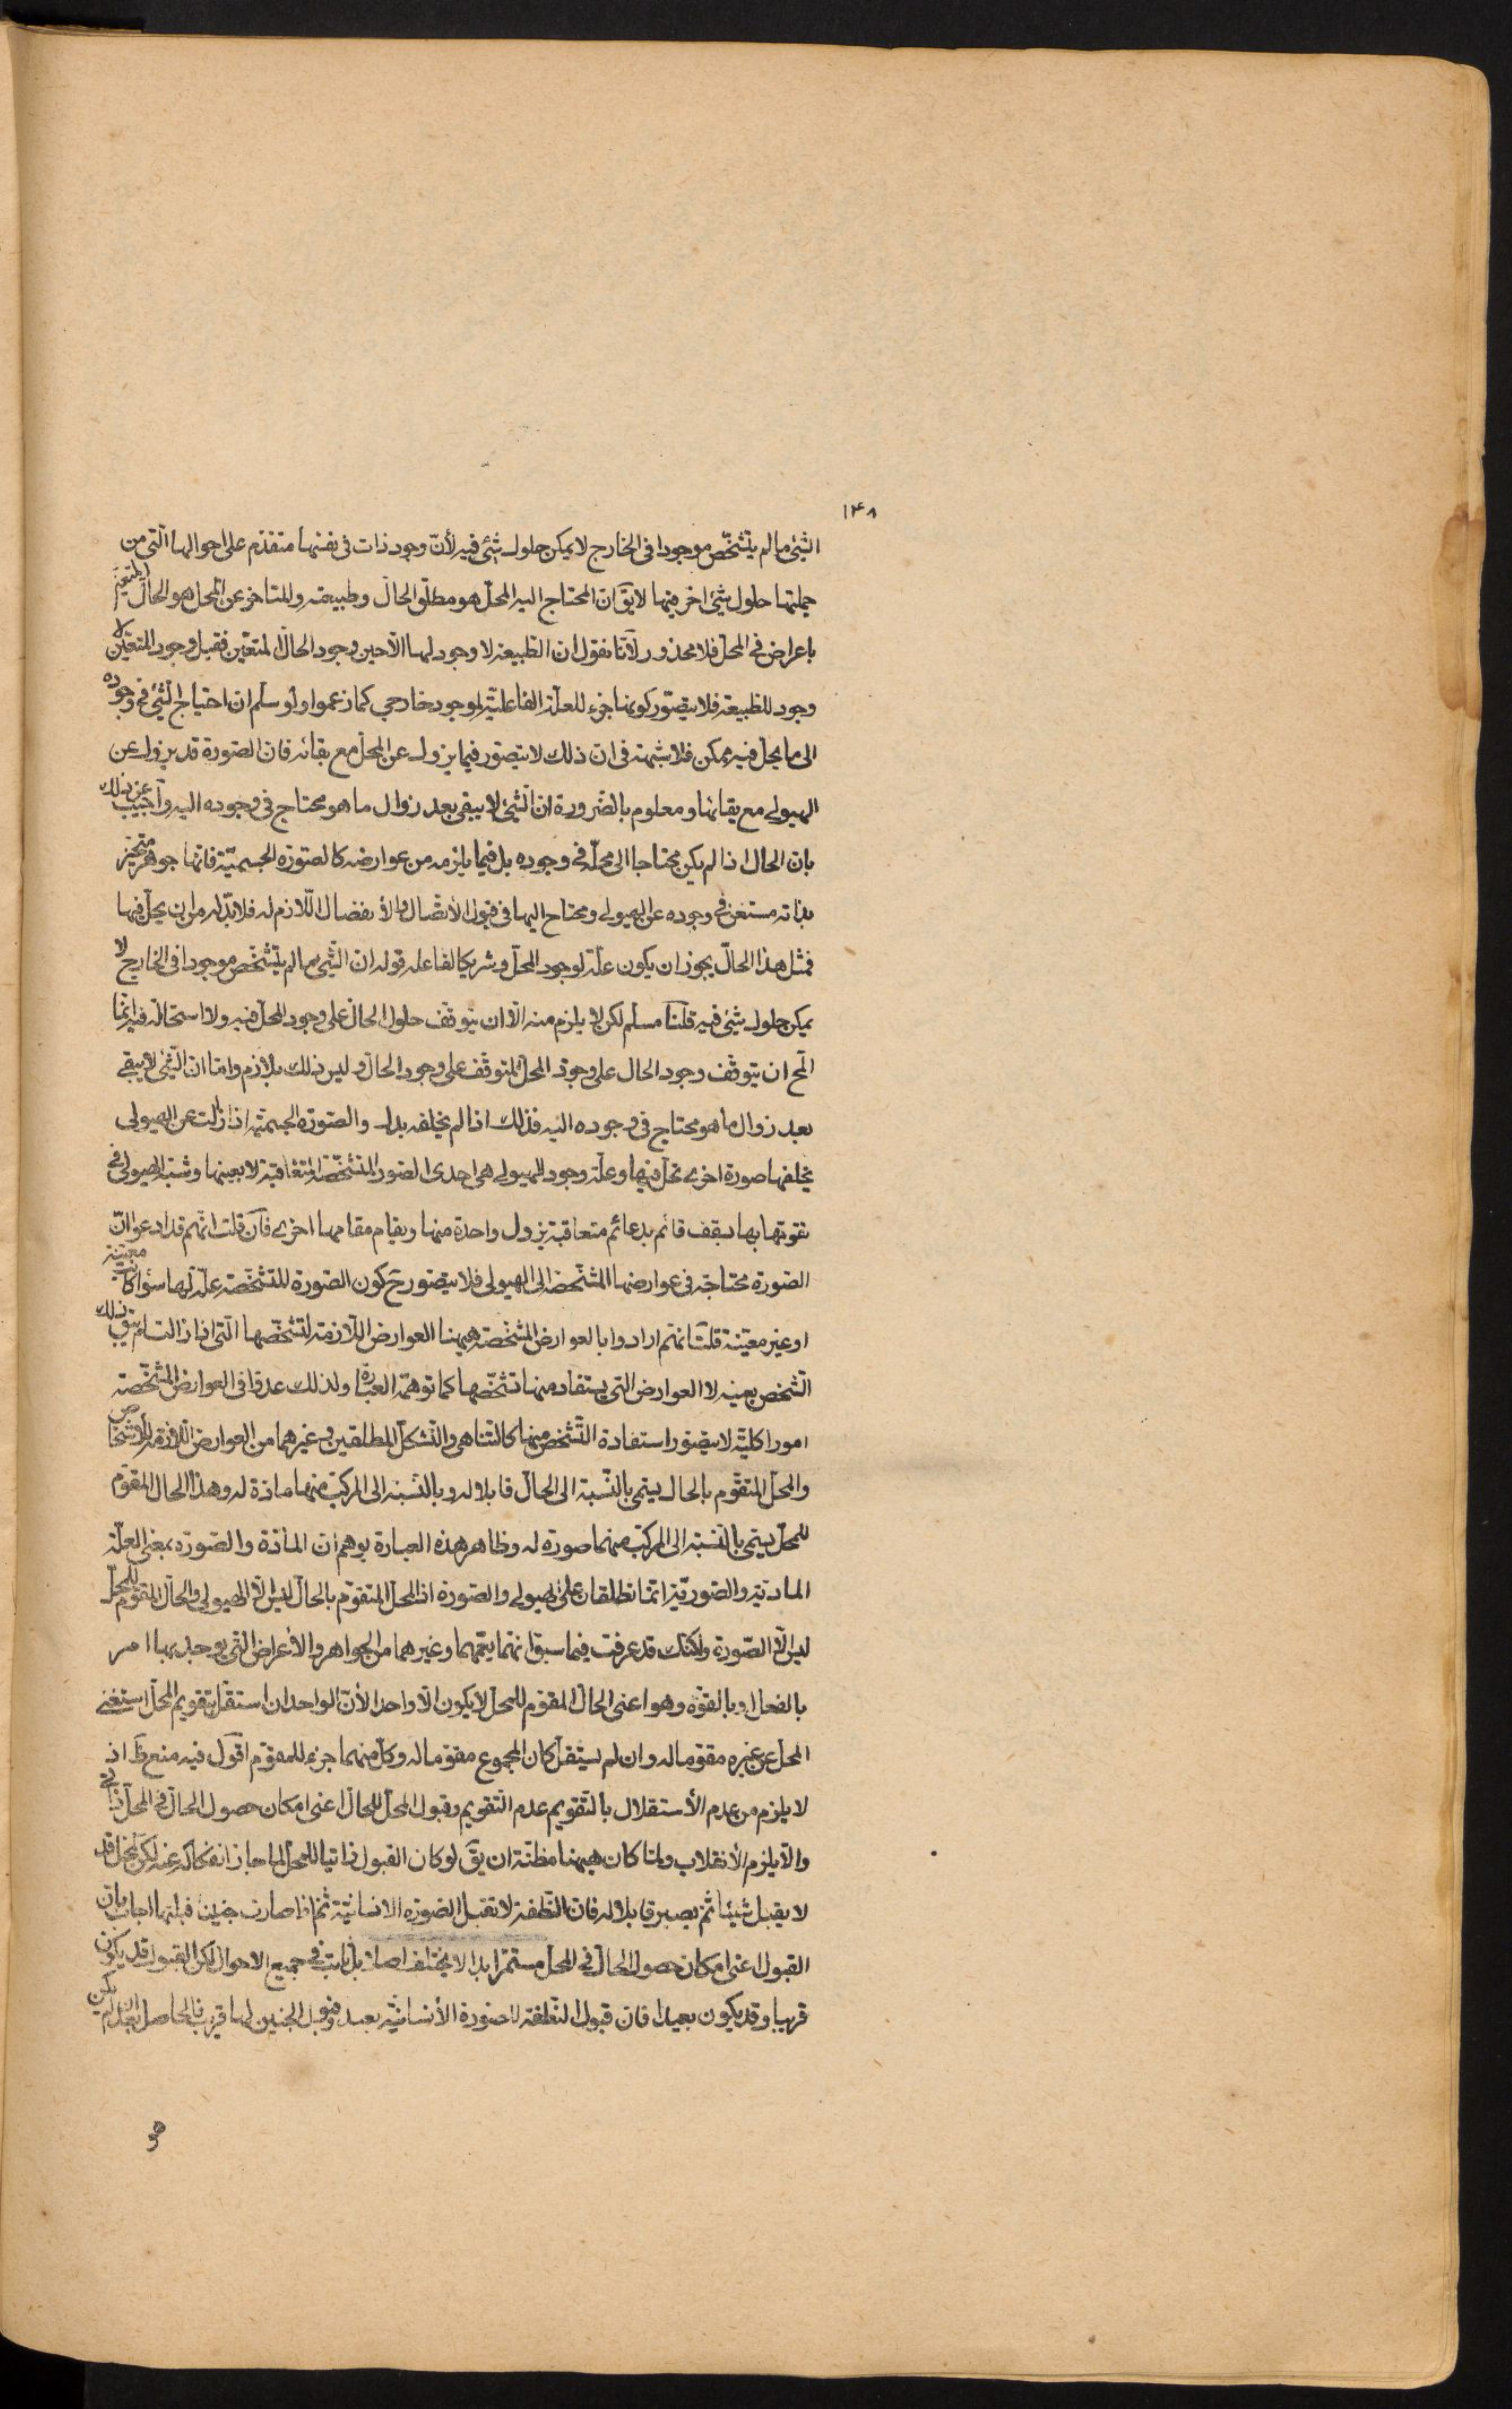 ١٣٨
الشئ ما لم يتشخّص موجودا فى الخارج لا يمكن حلول شئ فيه لأنّ وجود ذات فى نفسها متقدّم على احوالها الّتى من
جملتها حلول شئ اخر فيها لا يقَ انّ المحتاج اليه المحلّ هو مطلق الحالّ وطبيعته والمتاخر عن المحل هو الحالّ المتعيّن
باعراض فى المحلّ فلا محذور لأنّا نقول ان الطبيعة لا وجود لها الّا حين وجود الحالّ المتعيّن فقبل وجود المتعيّن لا
وجود للطبيعة فلا يتصّور كونها جزء للعلّة الفاعليّة لموجود خارجى كما زعموا ولو سلّم ان احتياج الشئ فى وجوده
الى ما يحلّ فيه ممكن فلا شبهة فى ان ذلك لا يتصور فيما يزول عن المحلّ مع بقائه فان الصّورة قد يزول عن
الهيولى مع بقائها ومعلوم بالضّرورة انّ الشئ لا يبقى بعد زوال ما هو محتاج فى وجوده اليه وأجيب عن ذلك
بان الحالّ اذا لم يكن محتاجا الى محلّه فى وجوده بل فيما يلزمه من عوارضه كالصّورة الجسميّة فانّها جوهر متحيّز
بذاته مستغن فى وجوده عن الهيولى ومحتاج اليها فى قبول الأتصّال والأنفصال اللّازم له فلا بدّ له من ان يحلّ فيها
فمثل هذا الحالّ يجوز ان يكون علّة لوجود المحلّ وشريكا لفاعله قوله ان الشّئ ما لم يتشخّص موجودا فى الخارج لا
يمكن حلول شئ فيه قلنا مسلّم لكن لا يلزم منه الّا ان يتوقّف حلول الحالّ على وجود المحلّ فيه ولا استحالة فيه انّما
المح ان يتوقّف وجود الحال على وجود المحلّ المتوقّف على وجود الحالّ وليس ذلك بلازم وامّا انّ الشّئ لا يبقى
بعد زوال ما هو محتاج فى وجوده اليه فذلك اذا لم يخلفه بدل والصّورة الجسميّة اذا زالت عن الهيولى
يخلفها صورة اخرى تحلّ فيها وعلّة وجود الهيولى هى احدى الصّور المتشخّصة المتعاقبة لا بعينها وشبّه الهيولى فى
تقوّمها بها بسقف قائم بدعائم متعاقبة يزول واحدة منها ويقام مقامها اخرى فان قلت انّهم قد ادعوا انّ
الصّورة محتاجة فى عوارضها المشخّصة الى الهيولى فلا يتصّور حَ كون الصّورة المتشخّصة علّة لها سؤاكانت معيّنة
او غير معيّنة قلت انّهم ارادوا بالعوارض المشخّصة هيهنا العوارض اللّازمة لتشخّصها الّتى اذا زالت لم يبق ذلك
التّشخص بعينه لا العوارض التى يستفاد منها تشخّصها كما توهمّه العبارة ولذلك عدوّا فى العوارض المشخّصة
امورا كليّة لا يتصّور استفادة التّشخص منها كالتّناهى والتّشكّل المطلقين وغيرهما من العوارض اللّازمة للأشخاص
والمحلّ المتقّوم بالحالّ يسمى بالنّسبة الى الحالّ قابلا له وبالنّسبة الى المركّب منهما مادّة له وهذا الحالّ المقوّم
للمحلّ يسمّى بالنّسبة الى المركّب منهما صورة له وظاهر هذه العبارة يوهم انّ المادّة والصّورة بمعنى العلّة
الماديّة والصّوريّة انّما تطلقان على الهيولى والصّورة اذ المحلّ المتقوّم بالحالّ ليس الّا الهيولى والحالّ المقوّم للمحلّ
ليس الّا الصّورة ولكنّك قد عرفت فيما سبق انّهما يعمّهما وغيرهما من الجواهر والأعراض التى يوجد بها امر
بالفعل او بالقوّة وهو اعنى الحالّ المقوّم للمحلّ لا يكون الّا واحدا لأنّ الواحد ان استقلّ بتقويم المحلّ استغنى
المحلّ عن غيره مقوّما له وان لم يستقل كان المجموع مقوّما له وكلّ منهما جزء للمقوّم اقول فيه منع ظَ اذ
لا يلزم من عدم الأستقلال بالتّقويم عدم التّقويم وقبول المحلّ للحالّ اعنى امكان حصول الحالّ فى المحلّ ذاتى
والّا يلزم الأنقلاب ولمّا كان هيهنا مظنّة ان يقَ لو كان القبول ذاتيّا للمحلّ لما جاز انفكاكه عنه لكنّ المحلّ قد
لا يقبل شيئا ثمّ يصير قابلا له فان النّطفة لا تقبل الصّورة الانسانيّة ثمّ اذا صارت جنينا قبلتها اجاب بان
القبول اعنى امكان حصول الحالّ فى المحلّ مستمّر ابدا لا يختلف اصلا بل ثابت فى جميع الاحوال لكن القبول قد يكون
قريبا وقد يكون بعيدا فان قبول النّطفة للصّورة الأنسانيّة بعيد وقبول الجنين لها قريب فالحاصل بعد ان لم يكن
هو